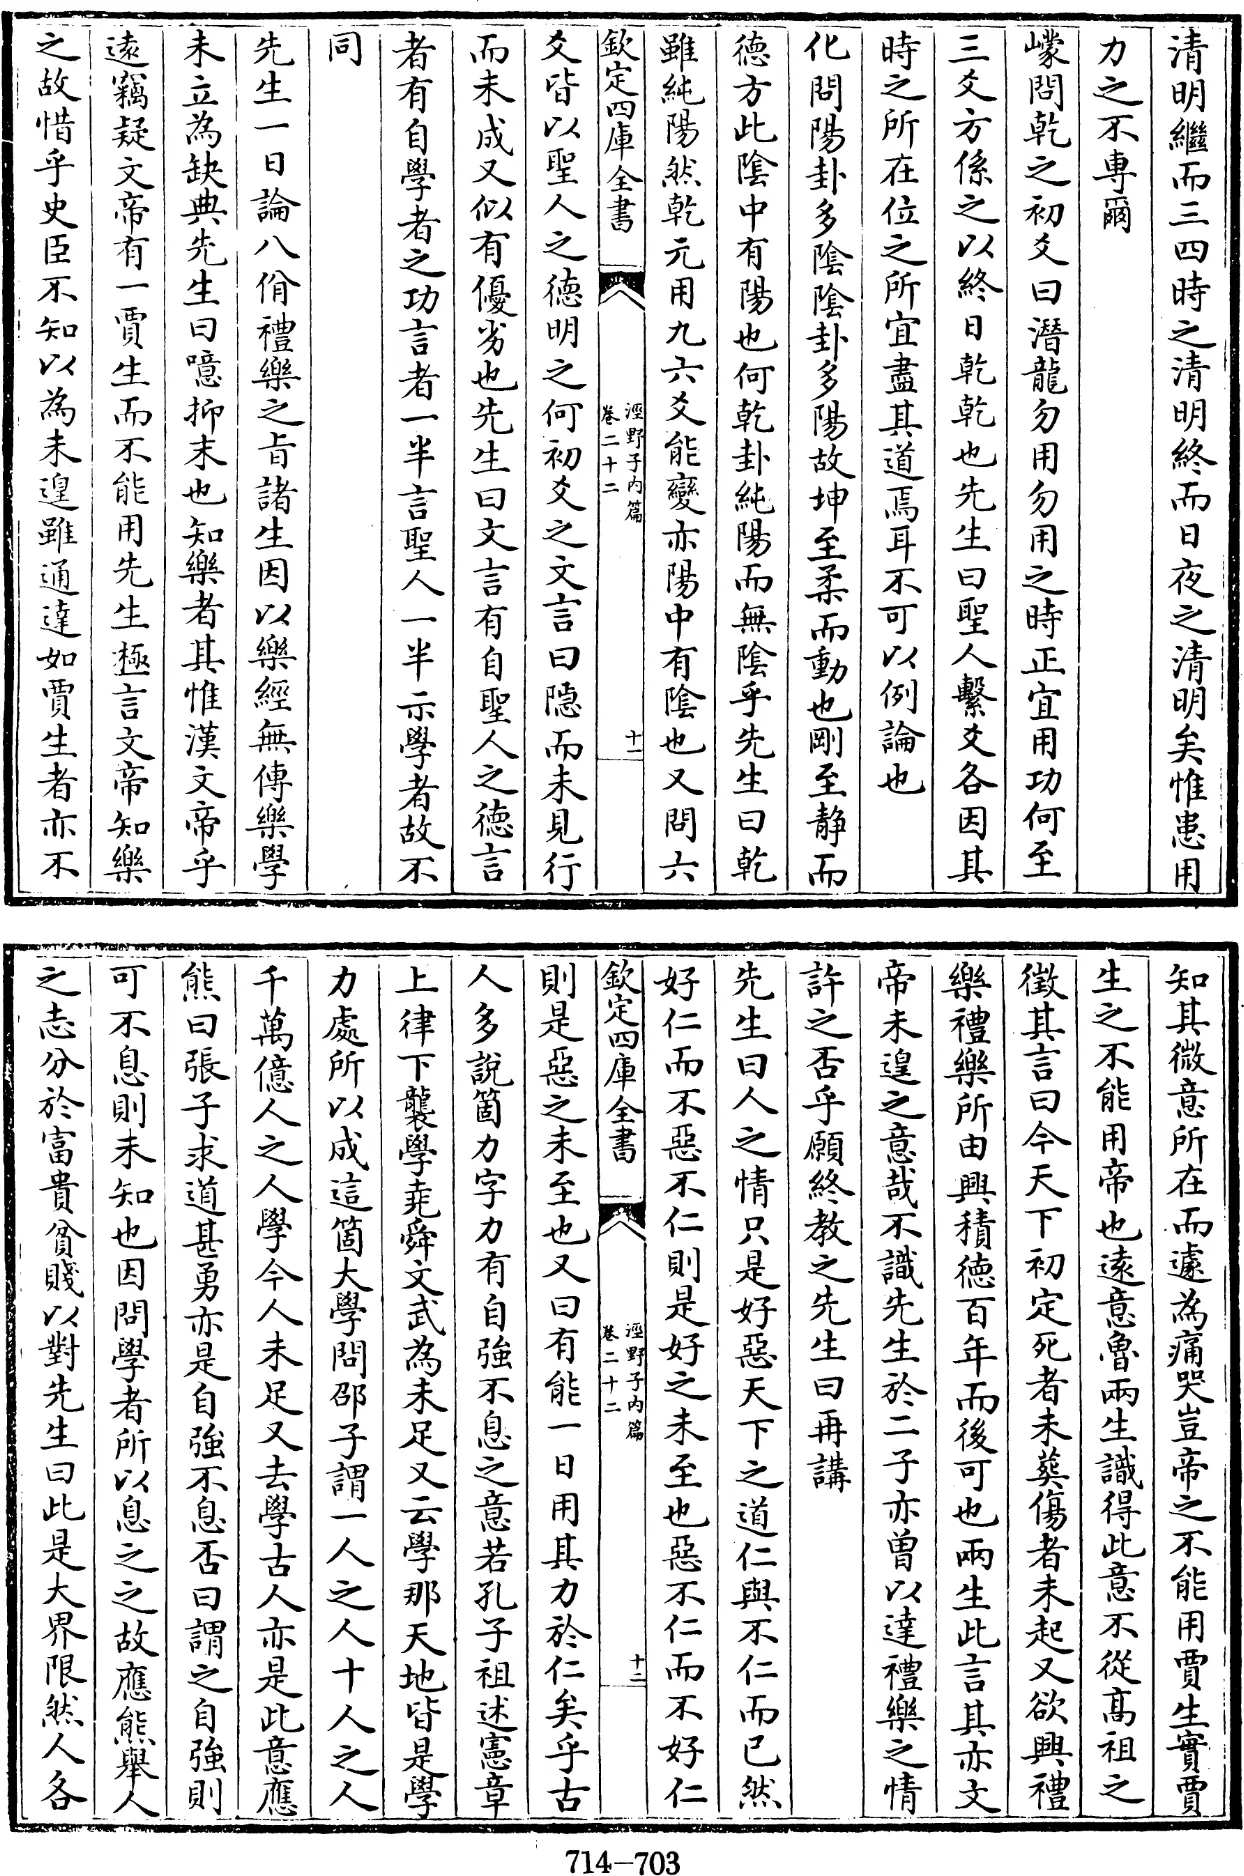 清明繼而三四時之清明終而日夜之清明矣惟患用
力之不專爾
嶸問乾之初爻曰潛龍勿用勿用之時正宜用功何至
三爻方係之以終日乾乾也先生曰聖人繫爻各因其
時之所在位之所宜盡其道焉耳不可以例論也
化問陽卦多陰陰卦多陽故坤至柔而動也剛至静而
德方此陰中有陽也何乾卦純陽而無陰乎先生曰乾
雖純陽然乾元用九六爻能變亦陽中有陰也又問六
欽定四庫全書
涇野子内篇
卷二十二
十一
爻皆以聖人之德明之何初爻之文言曰隱而未見行
而未成又似有優劣也先生曰文言有自聖人之德言
者有自學者之功言者一半言聖人一半示學者故不
同
先生一日論八佾禮樂之旨諸生因以樂經無傳樂學
未立為缺典先生曰噫抑末也知樂者其惟漢文帝乎
遠竊疑文帝有一賈生而不能用先生極言文帝知樂
之故惜乎史臣不知以為未遑雖通達如賈生者亦不
知其微意所在而遽為痛哭豈帝之不能用賈生實賈
生之不能用帝也遠意魯兩生識得此意不從髙祖之
徵其言曰今天下初定死者未葬傷者未起又欲興禮
樂禮樂所由興積德百年而後可也兩生此言其亦文
帝未遑之意哉不識先生於二子亦曾以達禮樂之情
許之否乎願終教之先生曰再講
先生曰人之情只是好惡天下之道仁與不仁而已然
好仁而不惡不仁則是好之未至也惡不仁而不好仁
欽定四庫全書
涇野子内篇
卷二十二
十二
則是惡之未至也又曰有能一日用其力於仁矣乎古
人多說箇力字力有自強不息之意若孔子祖述憲章
上律下襲學堯舜文武為未足又云學那天地皆是學
力處所以成這箇大學問邵子謂一人之人十人之人
千萬億人之人學今人未足又去學古人亦是此意應
熊曰張子求道甚勇亦是自強不息否曰謂之自強則
可不息則未知也因問學者所以息之之故應熊舉人
之志分於富貴貧賤以對先生曰此是大界限然人各
714—703